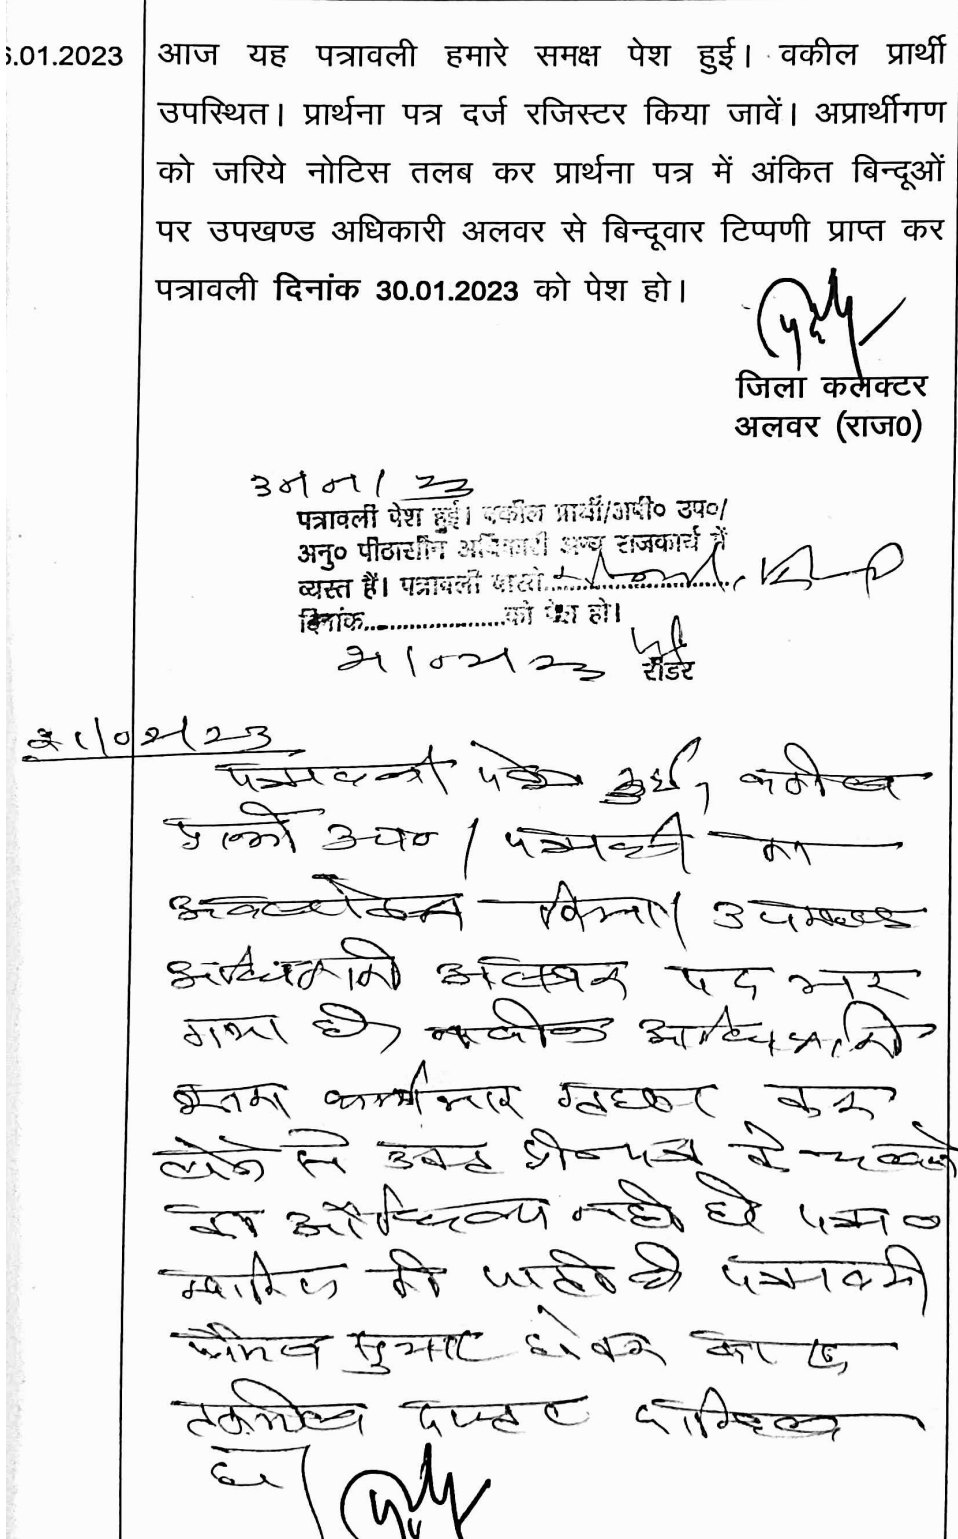 6.01.2023 आज यह पत्रावली हमारे समक्ष पेश हुई। वकील प्रार्थी
उपस्थित। प्रार्थना पत्र दर्ज रजिस्टर किया जावें। अप्रार्थीगण
को जरिये नोटिस तलब कर प्रार्थना पत्र में अंकित बिन्दूओं
पर उपखण्ड अधिकारी अलवर से बिन्दूवार टिप्पणी प्राप्त कर
पत्रावली दिनांक 30.01.2023 को पेश हो।
जिला कलक्टर
अलवर (राज0)
पत्रावली पेश हुई। वकील प्रार्थी/अपी० उप०/
अनु० पीठासीन अधिकारी अन्य राजकार्य में
व्यस्त हैं। पत्रावली वास्ते
दिनांक....................को पेश हो।
रीडर
पत्रावली पेश हुई, वकील
प्रार्थी उप० / पत्रावली का
अवलोकन किया। उपखण्ड
अधिकारी अलवर पद भर
गया है, नवीन अधिकारी
कार्यभार ग्रहण कर
लेने से उक्त के चलने
का औचित्य नहीं है
खारिज की जाती है पत्रावली
फैसल शुमार होकर बाद
तकमील दफ्तर दाखिल
हो।